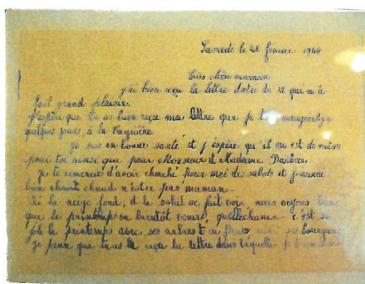 Samedi le 26 février 1944
Très chère maman
j'ai bien reçu ta lettre datée du 18 qui m'a
fait grand plaisir.
J'espère que tu as bien reçu ma lettre que je
quelques jours à la
Je suis en bonne santé et j'espère qu'il en est de même
pour toi ainsi que pour Monsieur et Madame
Je te remercie d'avoir cherché pour moi des sabots et j'aurai
bien chaud n'est-ce pas maman.
Si la neige fond, et le soleil se fait voir, nous croyons
que le printemps va bientôt venir, quelle chance c'est si
joli le printemps avec ses arbres en fleurs ses bourgeons
Je pense que tu as reçu la lettre dans laquelle je